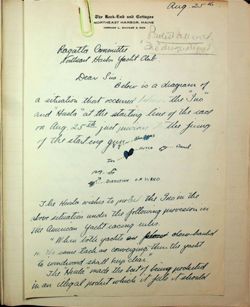 Aug. 25th
The Rock-End and Cottages
NORTHEAST HARBOR, MAINE
Regatta Committee
Northeast Harbor Yacht Club
Dear Sirs:
Below is a diagram of
a situation that occurred between the "Ino"
and Huela" at the starting line of the race
on Aug. 25th just the firing
of the starting gun
Ino
Direction of Wind
The Huela wishes to protest the Ino in the
above situation under the following provision in
the American Yacht racing rules.
"When both yachts are close-hauled
on the same tack as converging then the yacht
to windward shall keep clear."
The Huela made the best of being protected
in an illegal pocket which it felt it should